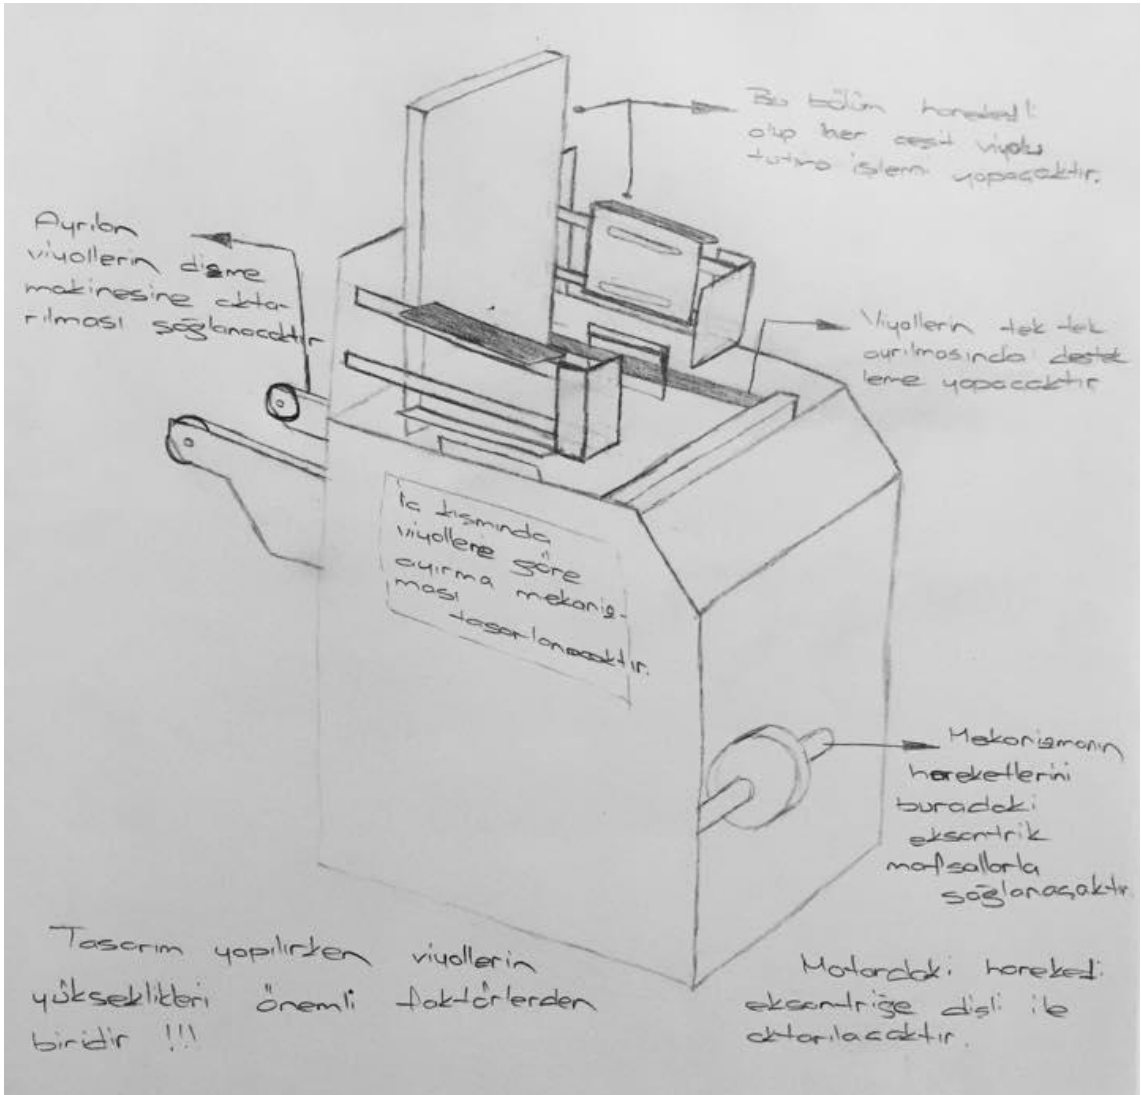 Bu bölüm hareketli
olup her çeşit viyolu
tutma işlemi yapacaktır.
Ayrılan
viyollerin dizme
makinesine akta-
rılması sağlanacaktır
Viyollerin tek tek
ayrılmasında destek
leme yapacaktır
İç kısmında
viyollere göre
ayırma mekaniz-
ması
tasarlanacaktır.
Mekanizmanın
hareketlerini
buradaki
eksantrik
mafsallarla
sağlanacaktır.
Tasarım yapılırken viyollerin
yükseklikleri önemli faktörlerden
biridir !!!
Motordaki hareketi
eksantriğe dişli ile
aktarılacaktır.